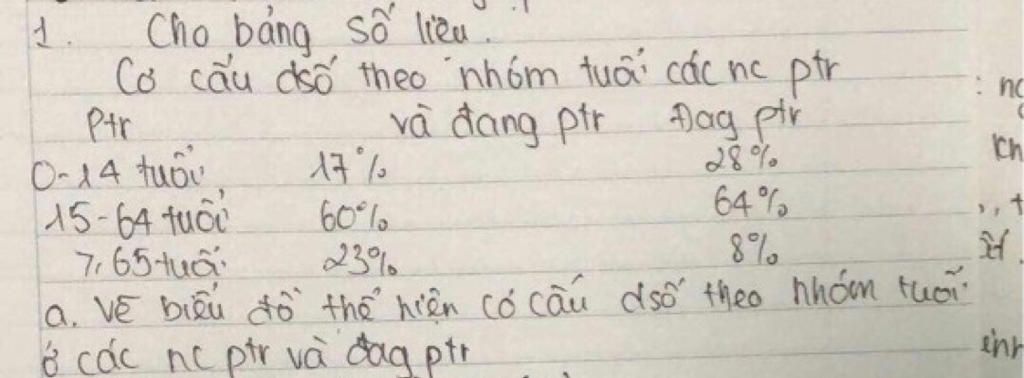 1. Cho bảng số liệu.
Cơ cấu dsố theo nhóm tuổi các nc ptr
Ptr và đang ptr Đag ptr
0-14 tuổi 17% 28%
15-64 tuổi 60% 64%
≥65 tuổi 23% 8%
a. Vẽ biểu đồ thể hiện cơ cấu dsố theo nhóm tuổi
ở các nc ptr và đag ptr